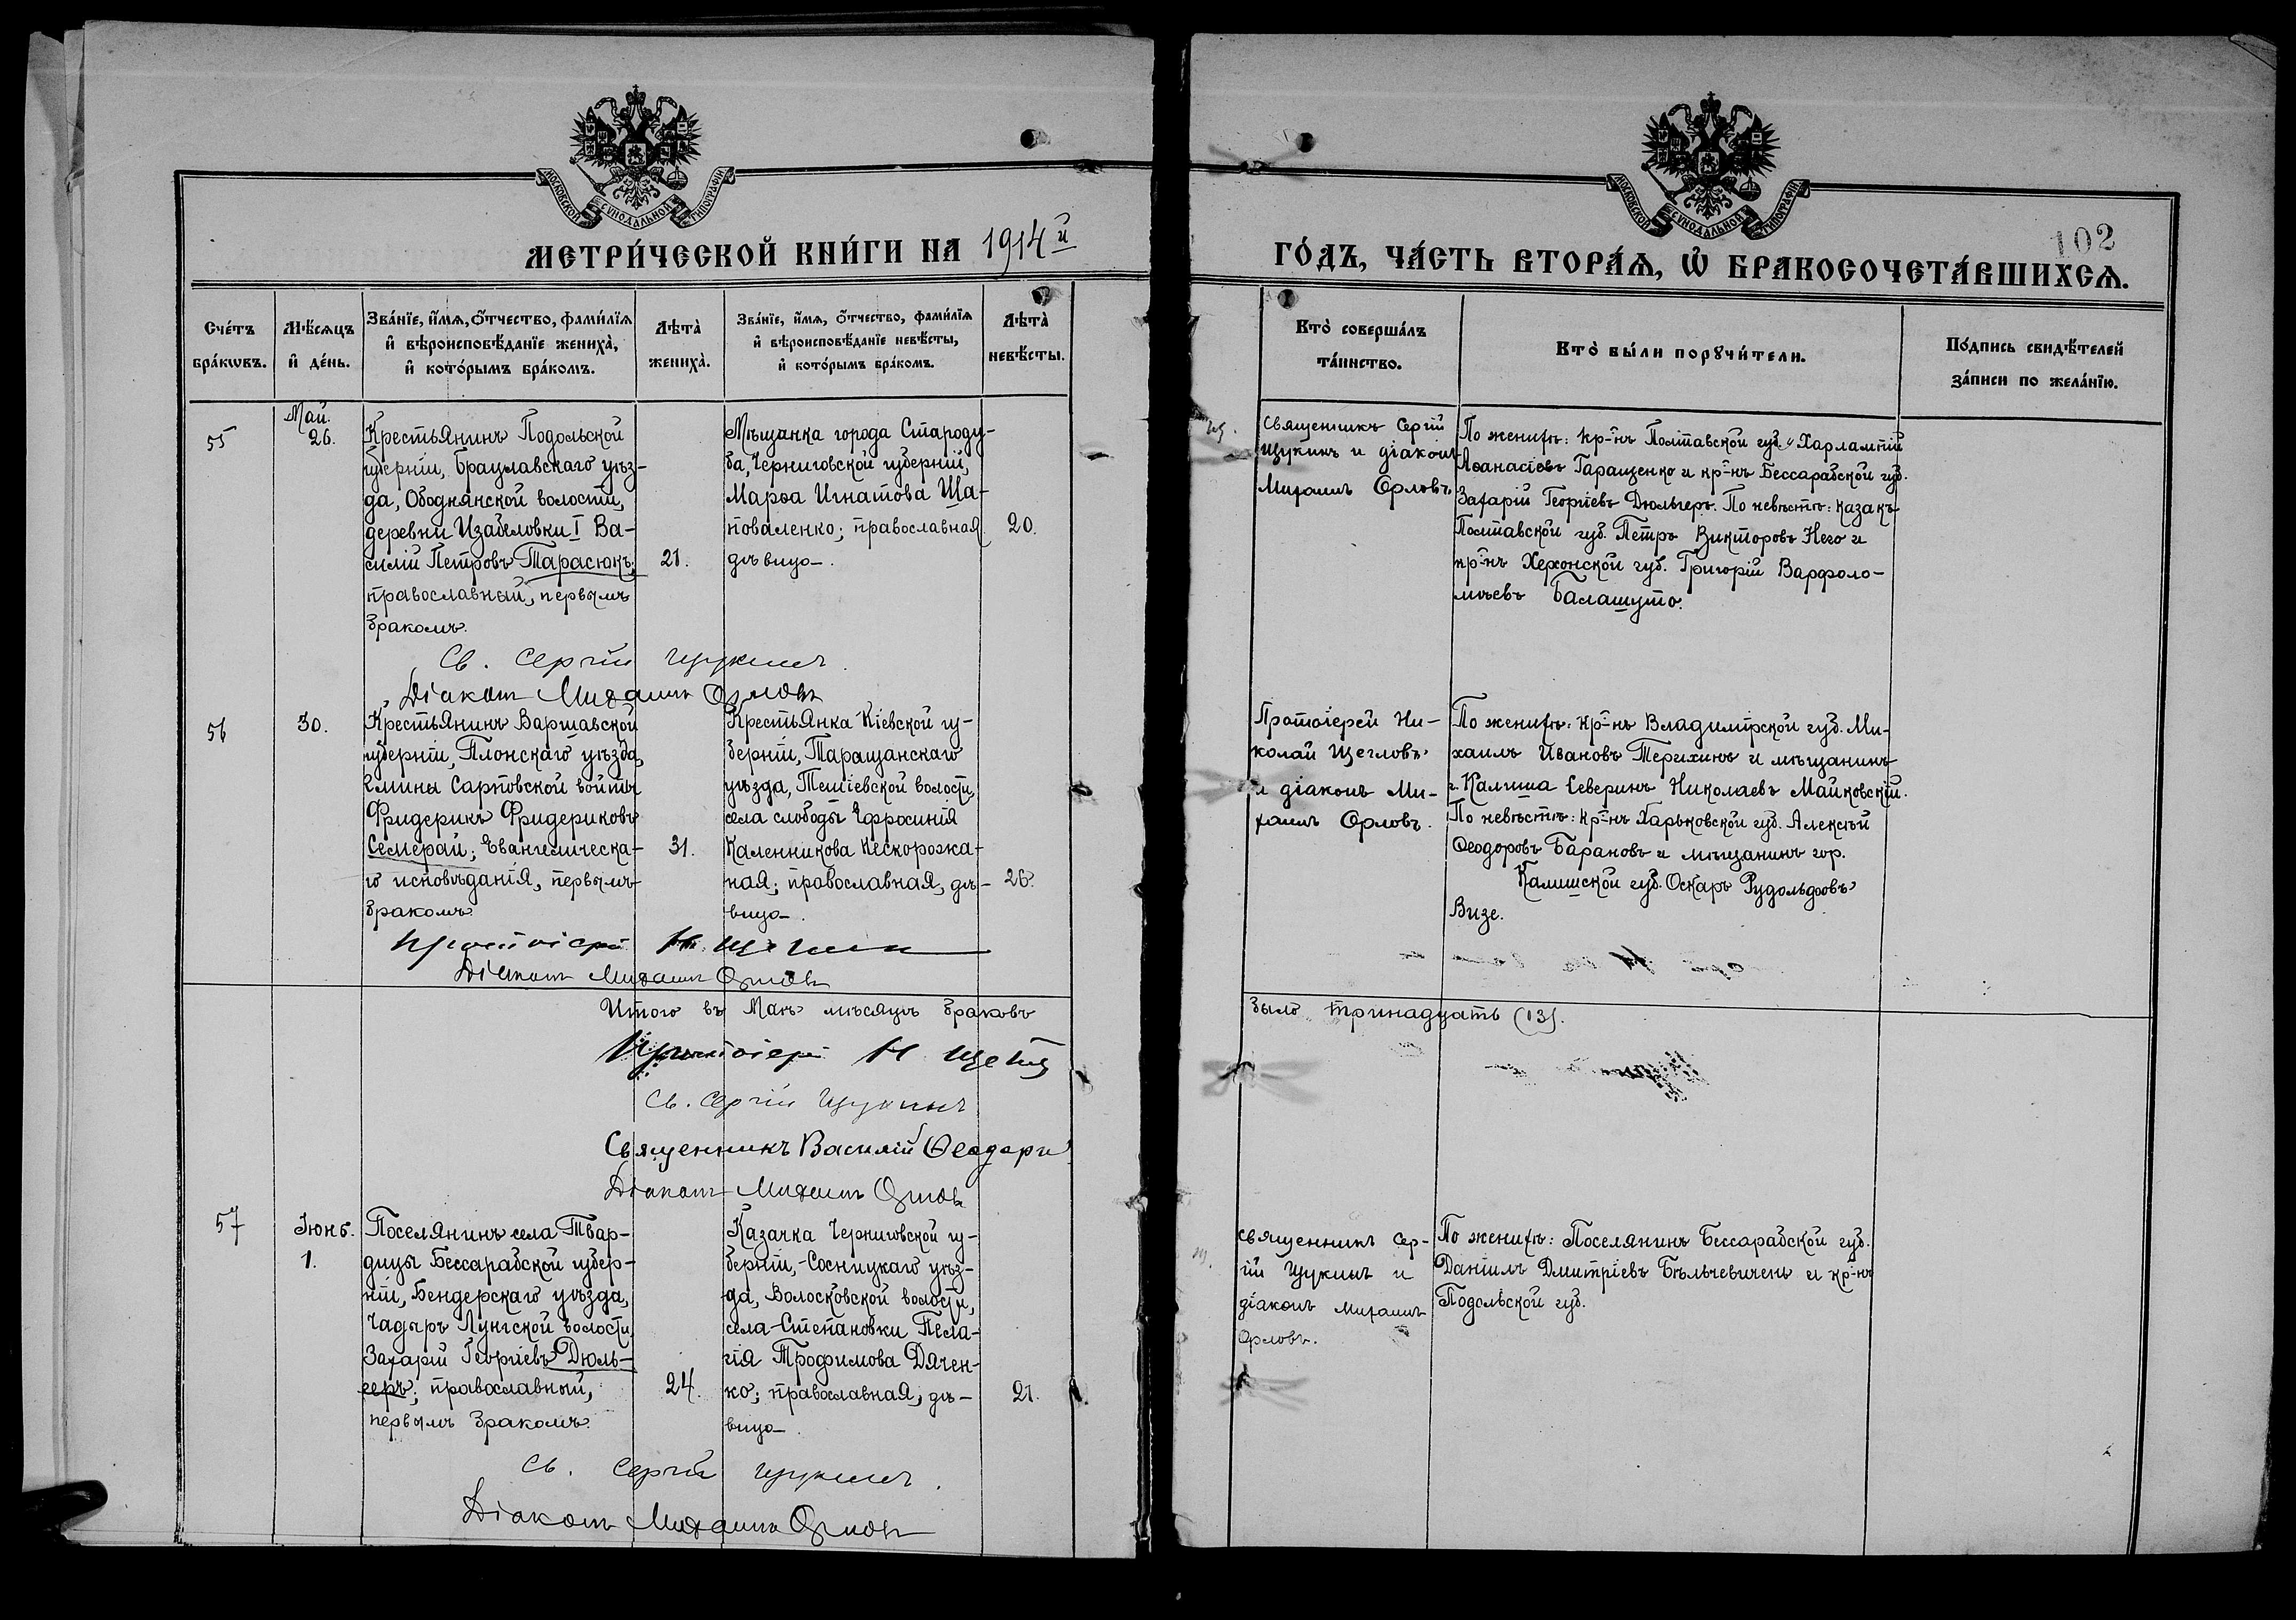 МОСКОВСКОЙ СѴНОДАЛЬНОЙ ТИПОГРАФІИ
МЕТРИ́ЧЕСКОЙ КНИ́ГИ НА 1914й
Сче́тъ бра́кѡвъ.
Мѣ́сяцъ и҆ де́нь.
Зва́нїе, и҆́мѧ, ѻ҆́тчество, фами́лїѧ
и҆ вѣроисповѣ́данїе жениха̀,
и҆ кото́рымъ бра́комъ.
Лѣта̀ жениха̀.
Зва́нїе, и҆́мѧ, ѻ҆́тчество, фами́лїѧ
и҆ вѣроисповѣ́данїе невѣ́сты,
и҆ кото́рымъ бра́комъ.
Лѣта̀ невѣ́сты.
55
Май.
26.
Крестьянинъ Подольской
губерніи, Брацлавскаго уѣз-
да, Ободнянской волости,
деревни Изабеловки I Ва-
силій Петровъ Тарасюкъ;
православный, первымъ
бракомъ.
21.
Мѣщанка города Староду-
ба, Черниговской губерніи,
Марѳа Игнатова Ша-
поваленко; православная
дѣвица.
20.
Св. Сергій Щукинъ.
Діаконъ Михаилъ Орловъ
56
30.
Крестьянинъ Варшавской
губерніи, Плонскаго уѣзда,
гмины Сарповской войты
Фридерикъ Фридериковъ
Семерай; Евангелическа-
го исповѣданія, первымъ
бракомъ.
31.
Крестьянка Кіевской гу-
берніи, Таращанскаго
уѣзда, Тетіевской волости,
села слободы Ефросинія
Каленникова Нескорожа-
ная; православная, дѣ-
вица.
26.
Протоіерей Н. Щегловъ
Діаконъ Михаилъ Орловъ
Итого въ Маѣ мѣсяцѣ браковъ
Протоіерей Н Щегловъ
Св. Сергій Щукинъ
Священникъ Василій Ѳеодори
Діаконъ Михаилъ Орловъ
57
Іюнь.
1.
Поселянинъ села Твар-
дицы Бессарабской губер-
ніи, Бендерскаго уѣзда,
Чадыръ Лунгской волости,
Захарій Георгіевъ Дюль-
геръ; православный,
первымъ бракомъ.
24.
Казачка Черниговской гу-
берніи, Сосницкаго уѣз-
да, Волосковской волости,
села Степановки Пела-
гія Трофимова Дячен-
ко; православная, дѣ-
вица.
21.
Св. Сергій Щукинъ.
Діаконъ Михаилъ Орловъ
МОСКОВСКОЙ СѴНОДАЛЬНОЙ ТИПОГРАФІИ
102
ГО́ДЪ, ЧА́СТЬ ВТОРА́Ѧ, Ѽ БРАКОСОЧЕТА́ВШИХСѦ.
Кто̀ соверша́лъ
та́инство.
Кто̀ бы́ли порꙋчи́тели.
По́дпись свидѣ́телей
за́писи по жела́нїю.
Священникъ Сергій
Щукинъ и діаконъ
Михаилъ Орловъ.
По женихѣ: кр-нъ Полтавской губ. Харлампій
Аѳанасіевъ Таращенко и кр-нъ Бессарабской губ.
Захарій Георгіевъ Дюльгеръ. По невѣстѣ: казакъ
Полтавской губ. Петръ Викторовъ Него и
кр-нъ Херсонской губ. Григорій Варфоло-
мѣевъ Балашуто.
Протоіерей Ни-
колай Щегловъ
и діаконъ Ми-
хаилъ Орловъ.
По женихѣ: кр-нъ Владимірской губ. Ми-
хаилъ Ивановъ Терихинъ и мѣщанинъ
г. Калиша Северинъ Николаевъ Майковскій.
По невѣстѣ: кр-нъ Харьковской губ. Алексѣй
Ѳеодоровъ Барановъ и мѣщанинъ гор.
Калишской губ. Оскаръ Рудольфовъ
Визе.
было тринадцать (13).
Священникъ Сер-
гій Щукинъ и
діаконъ Михаилъ
Орловъ.
По женихѣ: Поселянинъ Бессарабской губ.
Даніилъ Дмитріевъ Бѣльчевиченъ и кр-нъ
Подольской губ.